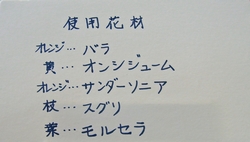 使用花材
オレンジ…バラ
黄…オンシジューム
オレンジ…サンダーソニア
枝…スグリ
葉…モルセラ